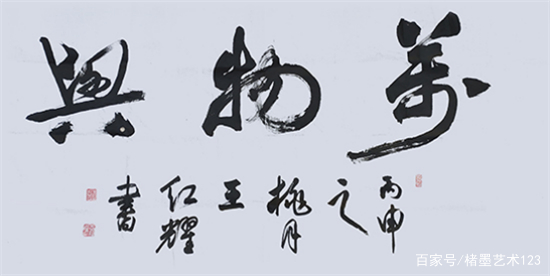 萬物興
丙申之桃月王红耀書
百家号/楮墨艺术123